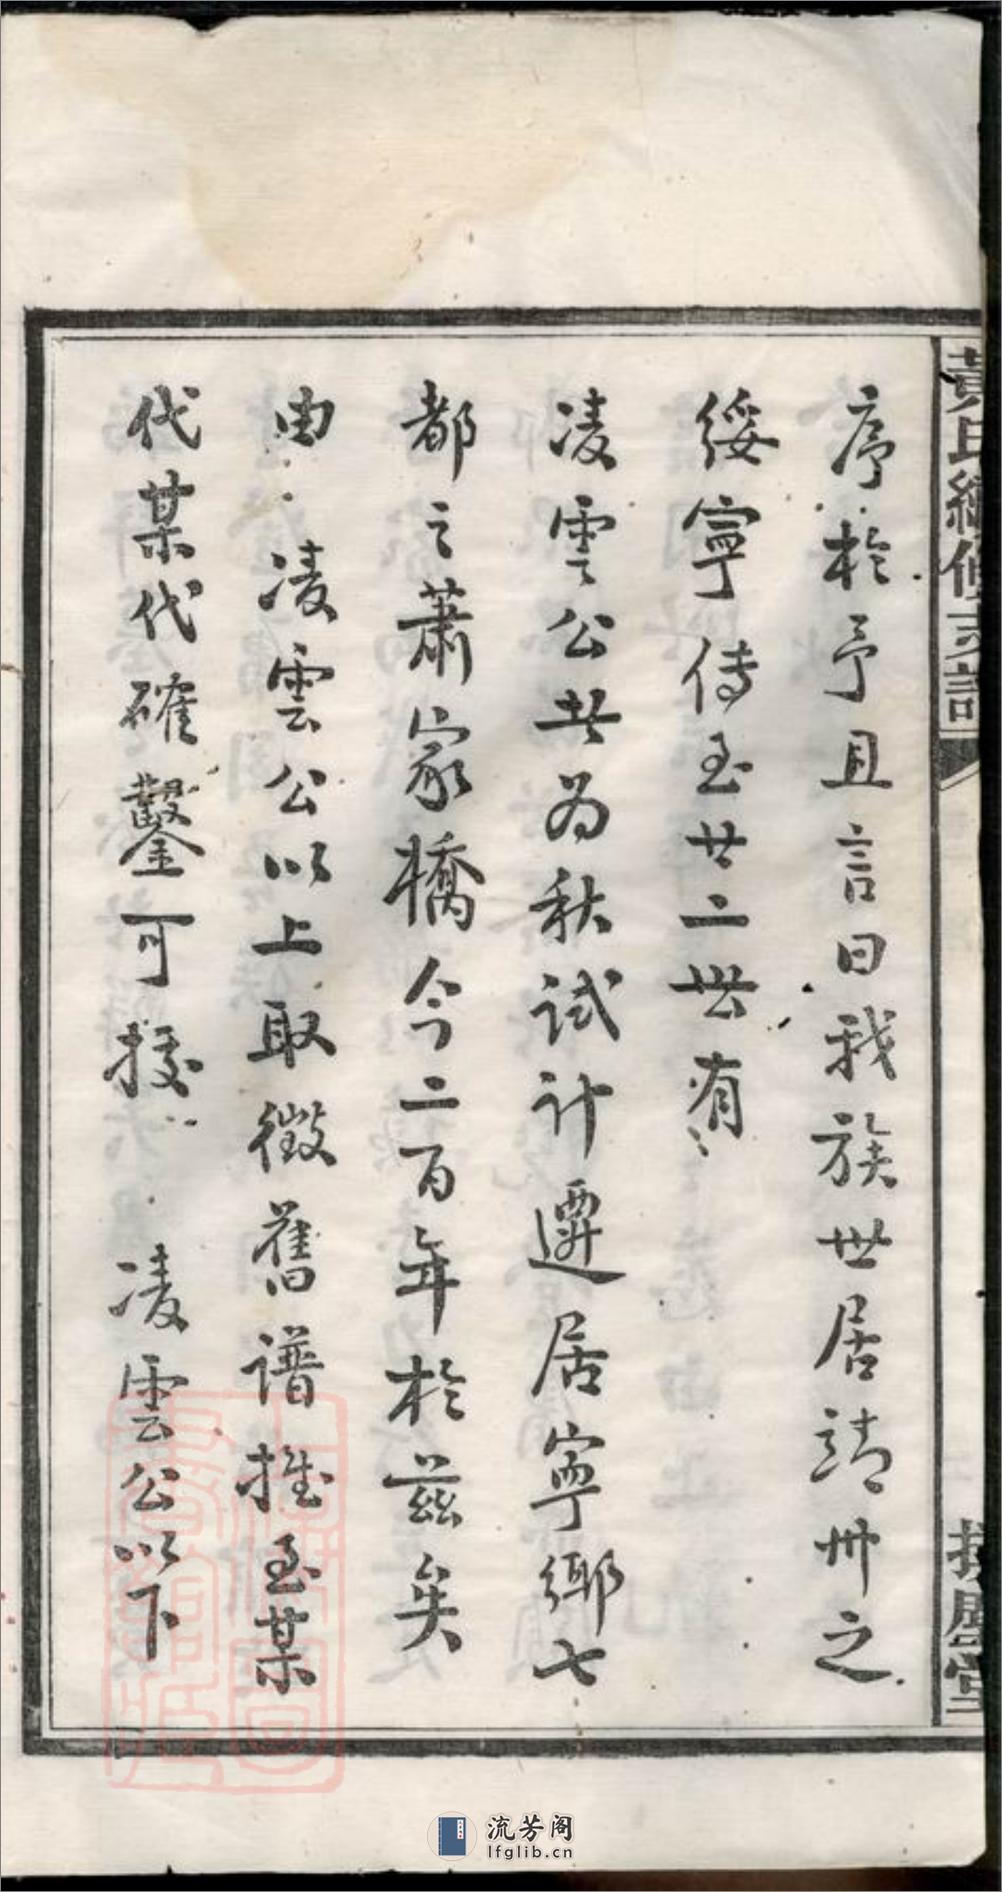 黃氏續修支譜
序於予且言曰我族世居靖州之
綏寧傳至廿二世有
凌雲公者為秋試計遷居寧鄉七
都之蕭家橋今二百年於茲矣
由 凌雲公以上取徵舊譜推至某
代某代確鑿可按 凌雲公以下
流芳阁
lfglib.cn